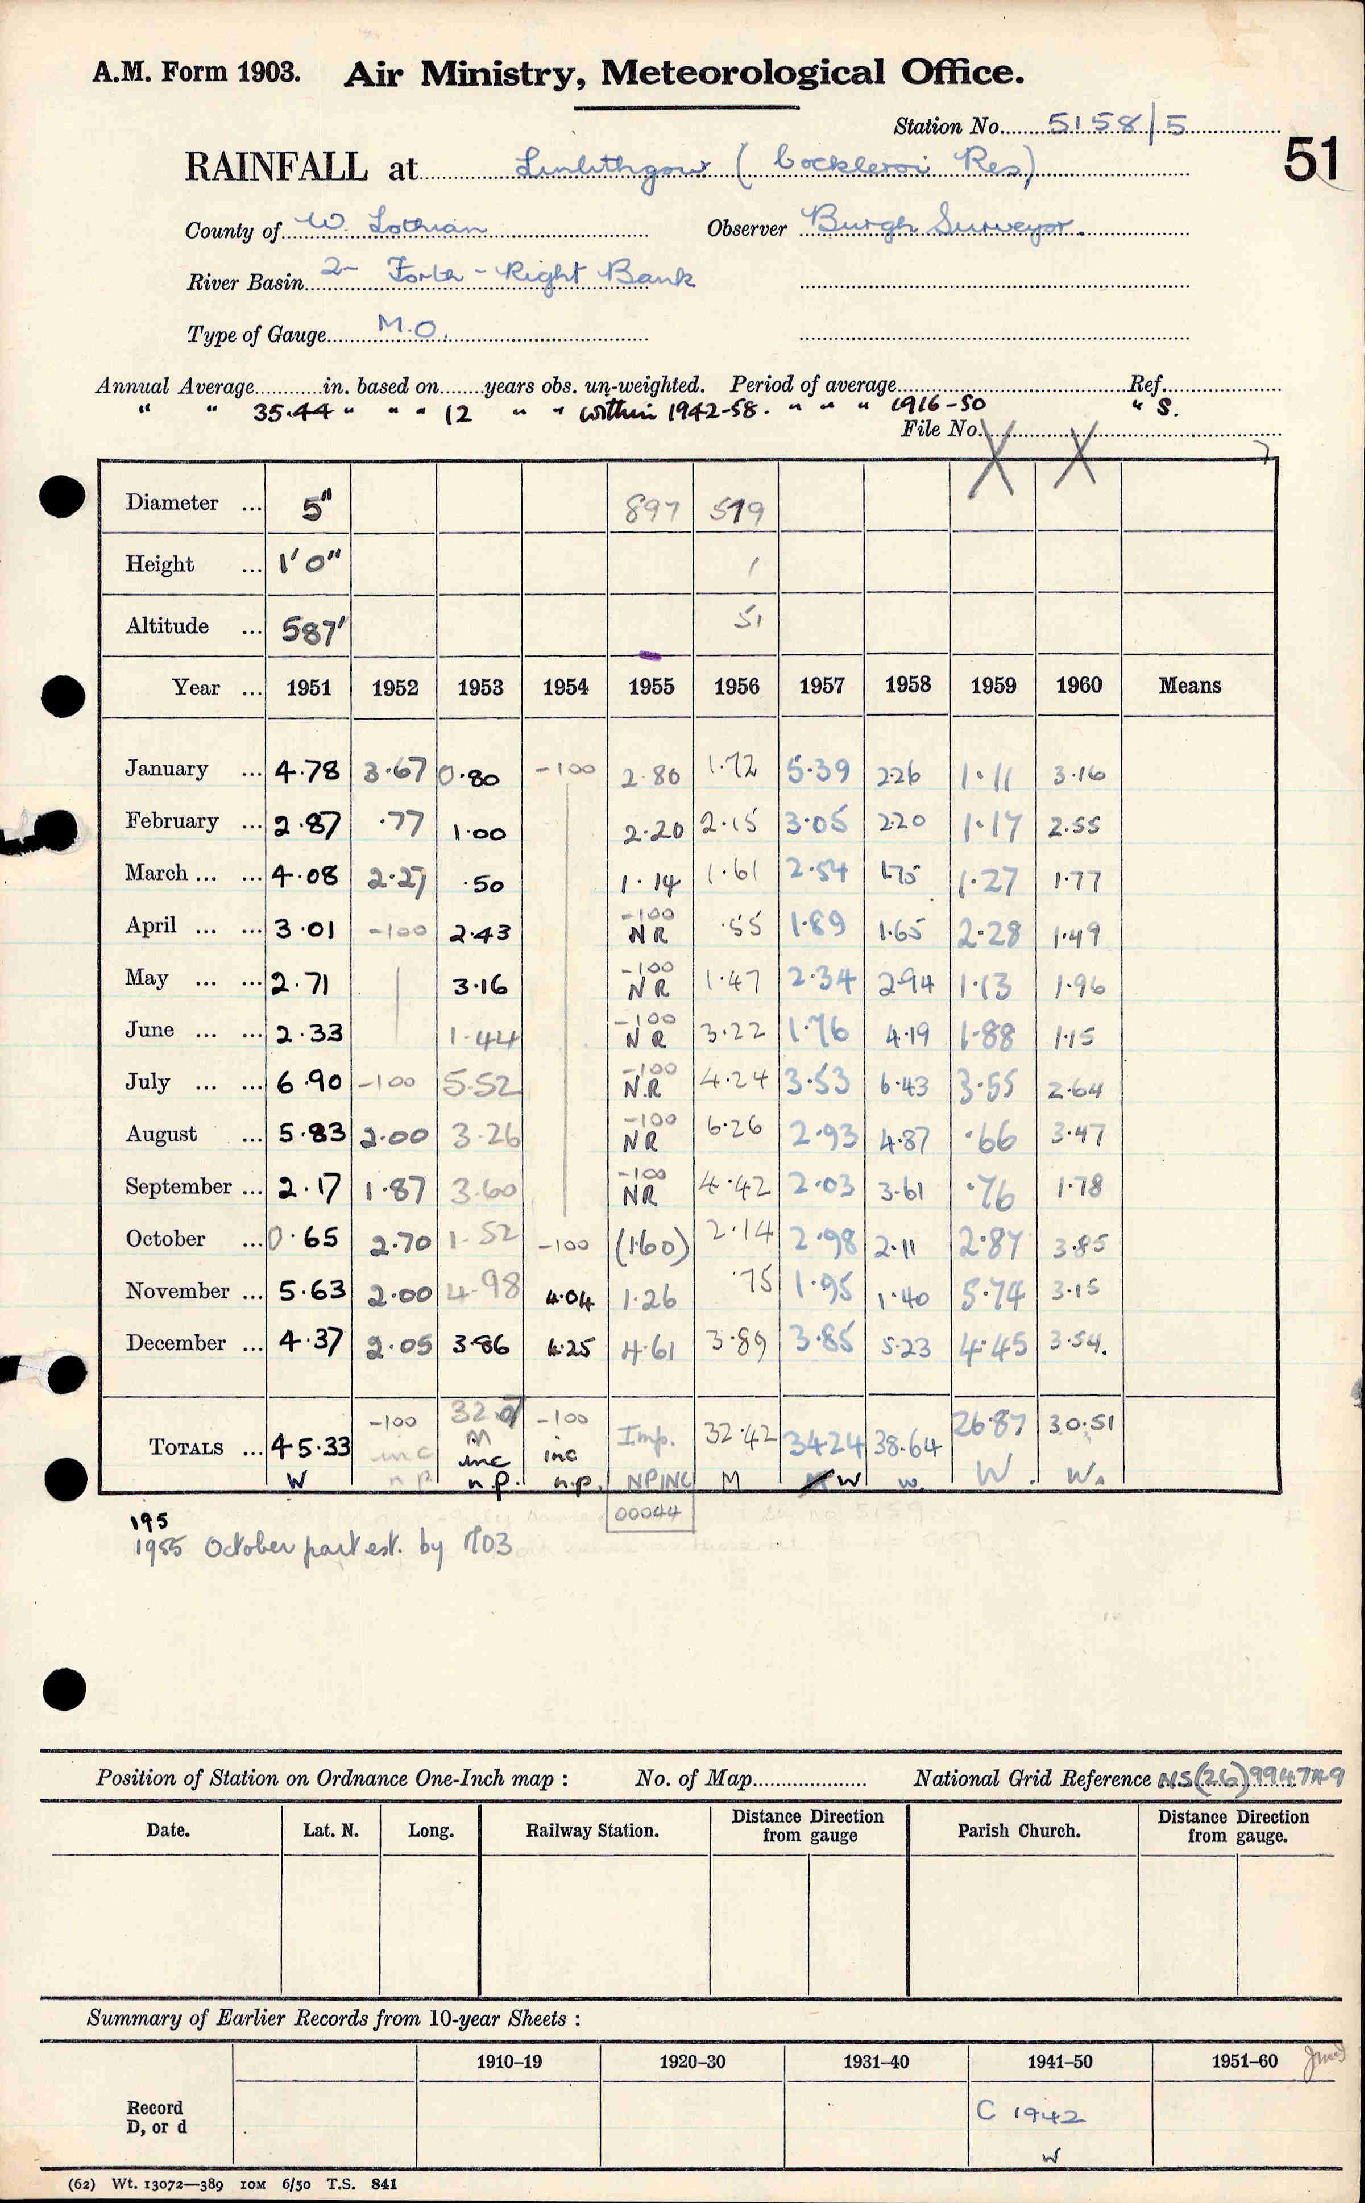 A.M. Form 1903. Air Ministry, Meteorological Office.
Station No. 5158/5
51
RAINFALL at Linlithgow (Cockleroi Res)
County of W. Lothian Observer Burgh Surveyor.
River Basin 2- Forth - Right Bank
Type of Gauge M.O.
Annual Average in. based on years obs. un-weighted. Period of average Ref.
" " 35.44 " " " 12 " " within 1942-58. " " " 1916-50 " S.
File No.
X X
Diameter ... 5" 897 519
Height ... 1' 0" 1
Altitude ... 587' 51
Year ... 1951 1952 1953 1954 1955 1956 1957 1958 1959 1960 Means
January ... 4.78 3.67 0.80 -100 2.80 1.72 5.39 2.26 1.11 3.16
February ... 2.87 .77 1.00 2.20 2.15 3.05 2.20 1.17 2.55
March ... ... 4.08 2.27 .50 1.14 1.61 2.54 1.75 1.27 1.77
April ... ... 3.01 -100 2.43 -100 NR .55 1.89 1.65 2.28 1.49
May ... ... 2.71 3.16 -100 NR 1.47 2.34 2.94 1.13 1.96
June ... ... 2.33 1.44 -100 NR 3.22 1.76 4.19 1.88 1.15
July ... ... 6.90 -100 5.52 -100 N.R 4.24 3.53 6.43 3.55 2.64
August ... 5.83 2.00 3.26 -100 NR 6.26 2.93 4.87 .66 3.47
September ... 2.17 1.87 3.60 -100 NR 4.42 2.03 3.61 .76 1.78
October ... 0.65 2.70 1.52 -100 (1.60) 2.14 2.98 2.11 2.87 3.85
November ... 5.63 2.00 4.98 4.04 1.26 .75 1.95 1.40 5.74 3.15
December ... 4.37 2.05 3.86 4.25 4.61 3.89 3.85 5.23 4.45 3.54.
TOTALS ... 45.33 -100 32.07 -100 Imp. 32.42 34.24 38.64 26.87 30.51
M
inc inc inc
W n.p. n.p. n.p. NPINC M W W. W. W.
00044
195
1955 October part est. by M03
Position of Station on Ordnance One-Inch map : No. of Map National Grid Reference NS(26)994749
Date. Lat. N. Long. Railway Station. Distance from gauge Direction Parish Church. Distance from gauge. Direction
Summary of Earlier Records from 10-year Sheets :
1910–19 1920–30 1931–40 1941–50 1951–60
Record D, or d
C 1942
W
(62) Wt. 13072—389 10M 6/50 T.S. 841